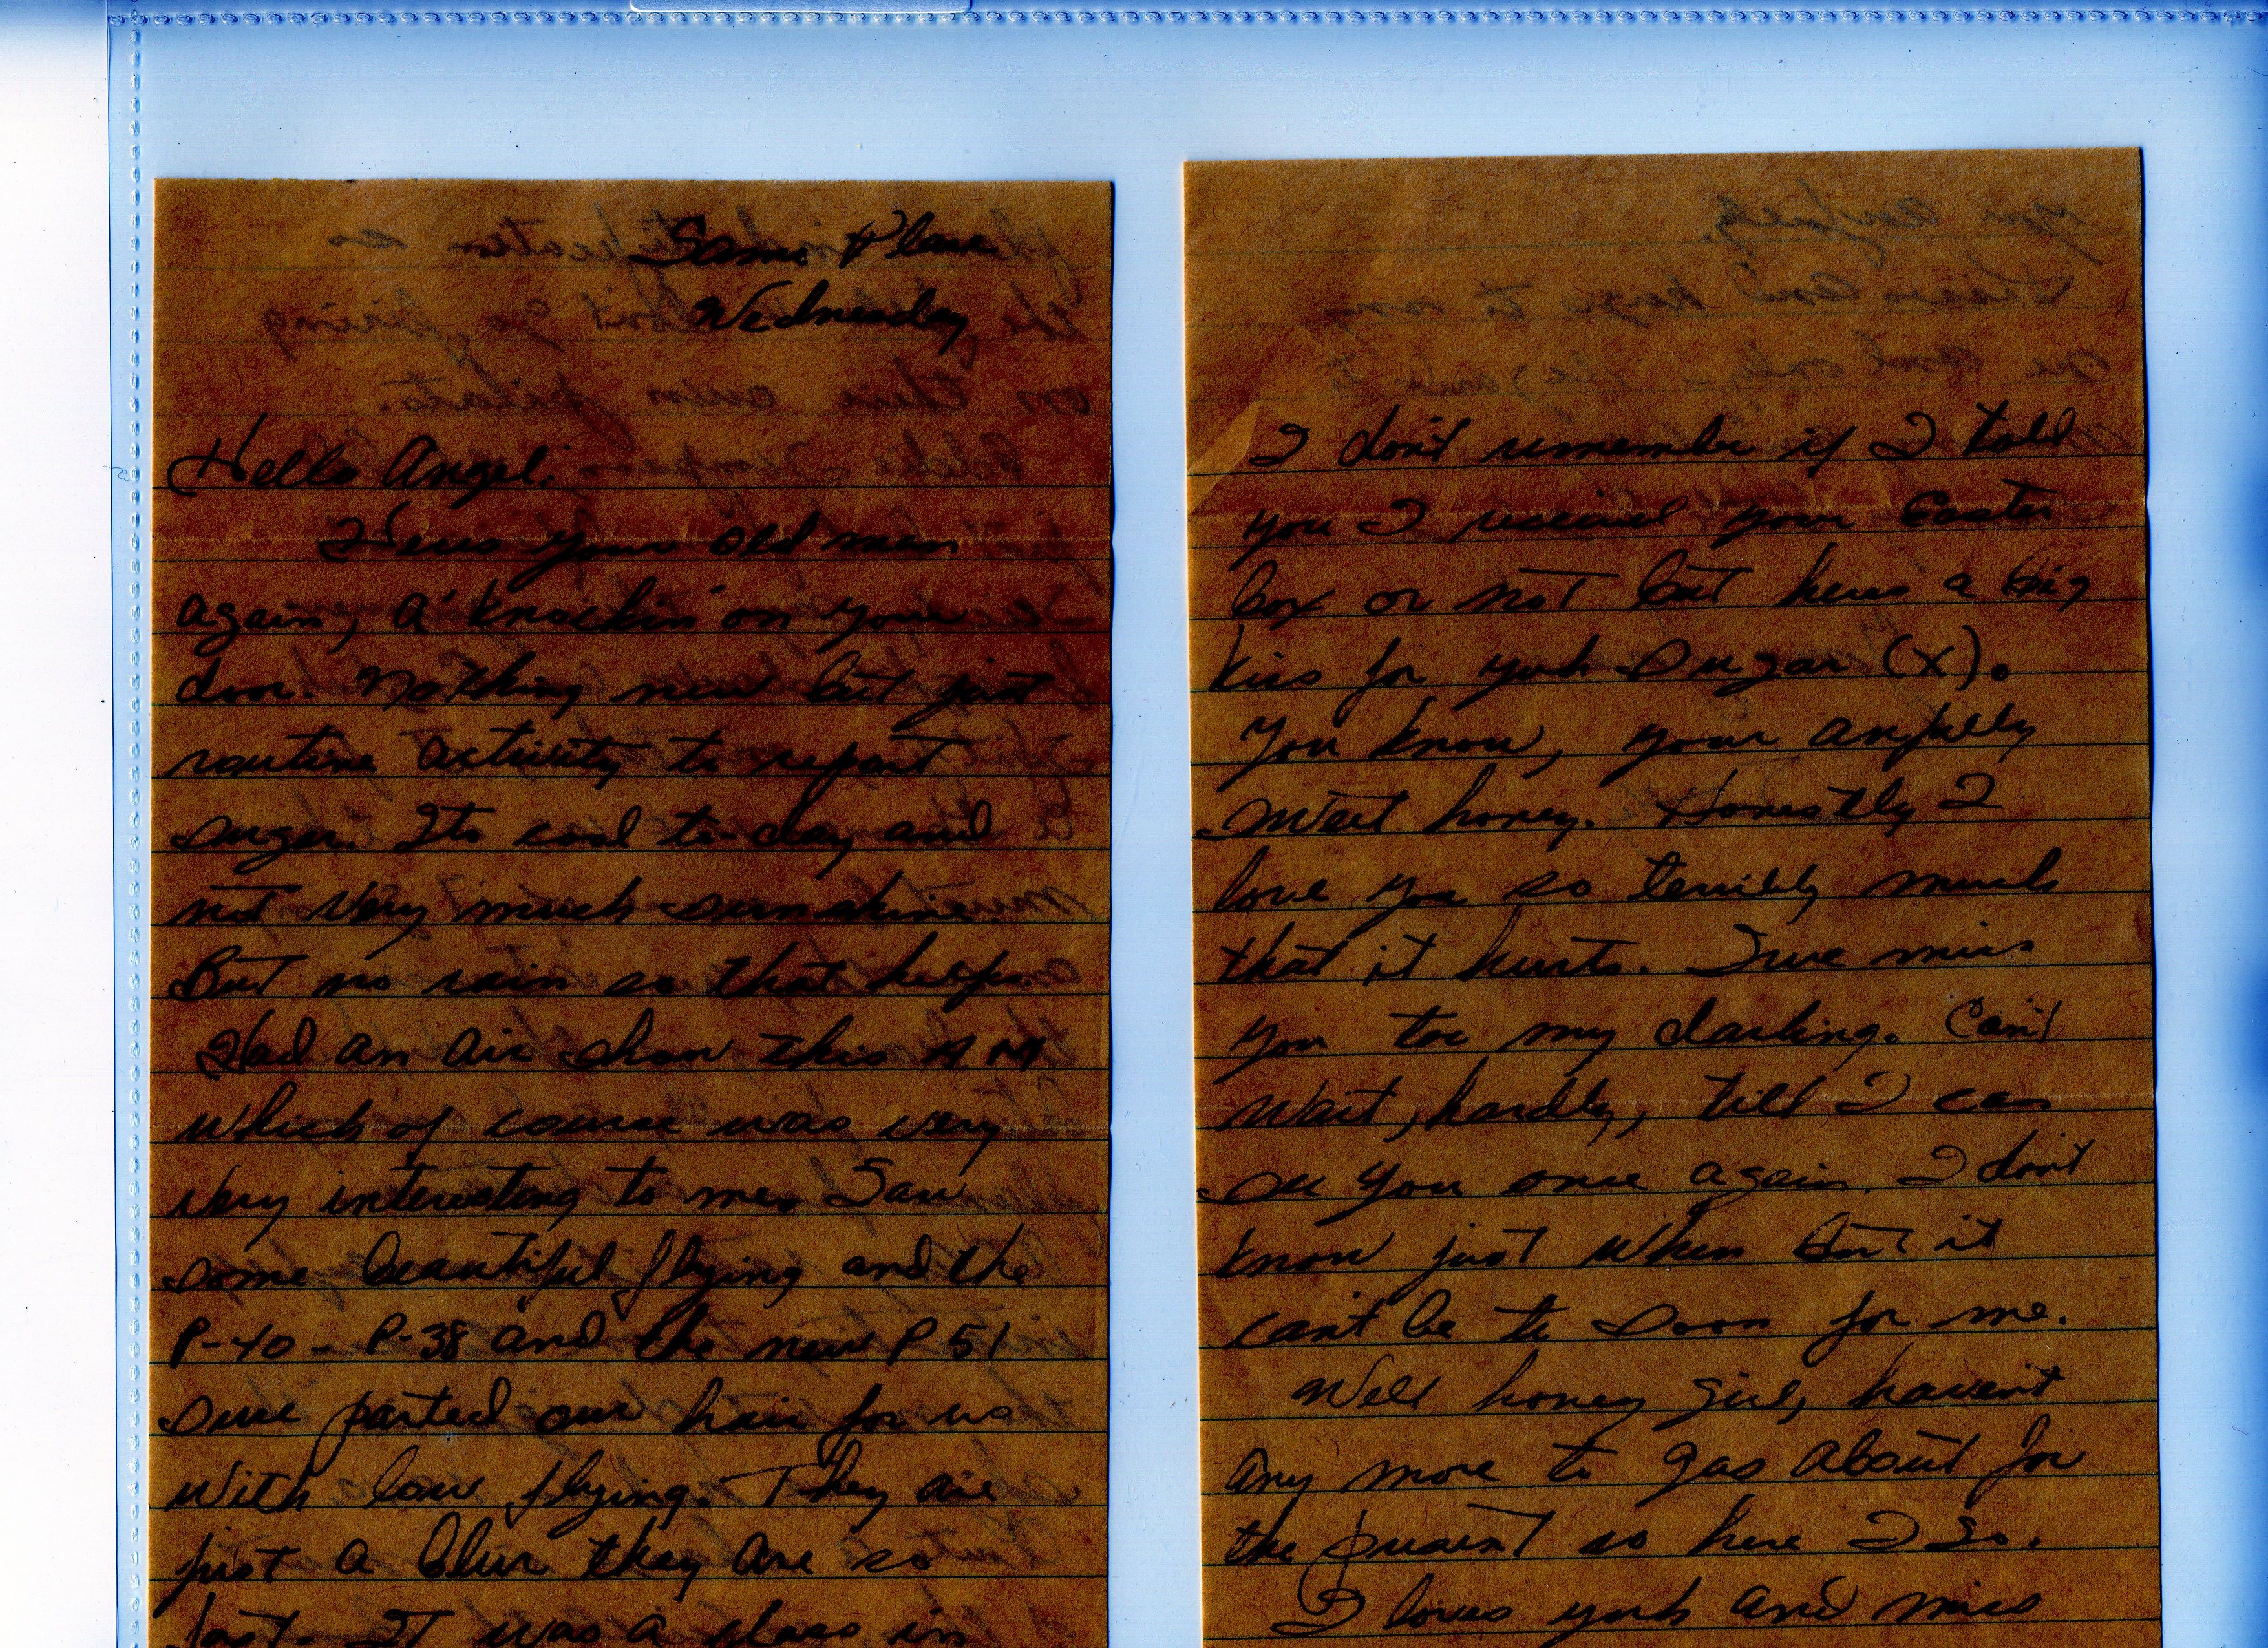 Same Place
Wednesday
Hello Angel:
Heres your old man
again, a' knockin' on your
door. Nothing new but just
routine activity to report
sugar. Its cool to-day and
not very much sunshine
But no rain so that helps.
Had an air show this A M
which of course was very
very interesting to me. Saw
some beautiful flying and the
P-40 - P-38 and the new P 51
sure parted our hair for us
with low flying. They are
just a blur they are so
fast. It was a class in
I don't remember if I told
you I received your Easter
box or not but heres a big
kiss for yuh sugar (X).
You know, your awfully
sweet honey. Honestly I
love you so terribly much
that it hurts. Sure miss
you too my darling. Can't
wait, hardly, till I can
see you once again. I don't
know just when but it
can't be to soon for me.
Well honey girl, haven't
any more to gas about for
the present so here I go.
I loves yuh and miss